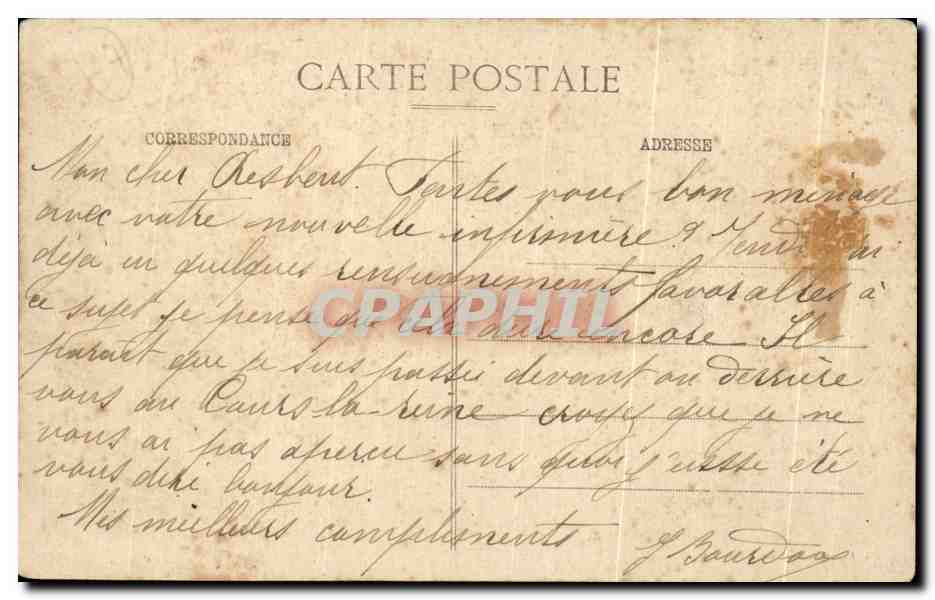 CARTE POSTALE
CORRESPONDANCE
ADRESSE
Mon cher Faites vous bon ménage
avec votre nouvelle infirmière ?
déja eu quelques renseignements favorables à
ce sujet je pense que cela dure encore Il
parait que je suis passée devant ou derrière
vous au Cours la reine croyez que je ne
vous ai pas aperçu sans quoi j'eusse été
vous dire bonjour.
Mes meilleurs compliments
CPAPHIL